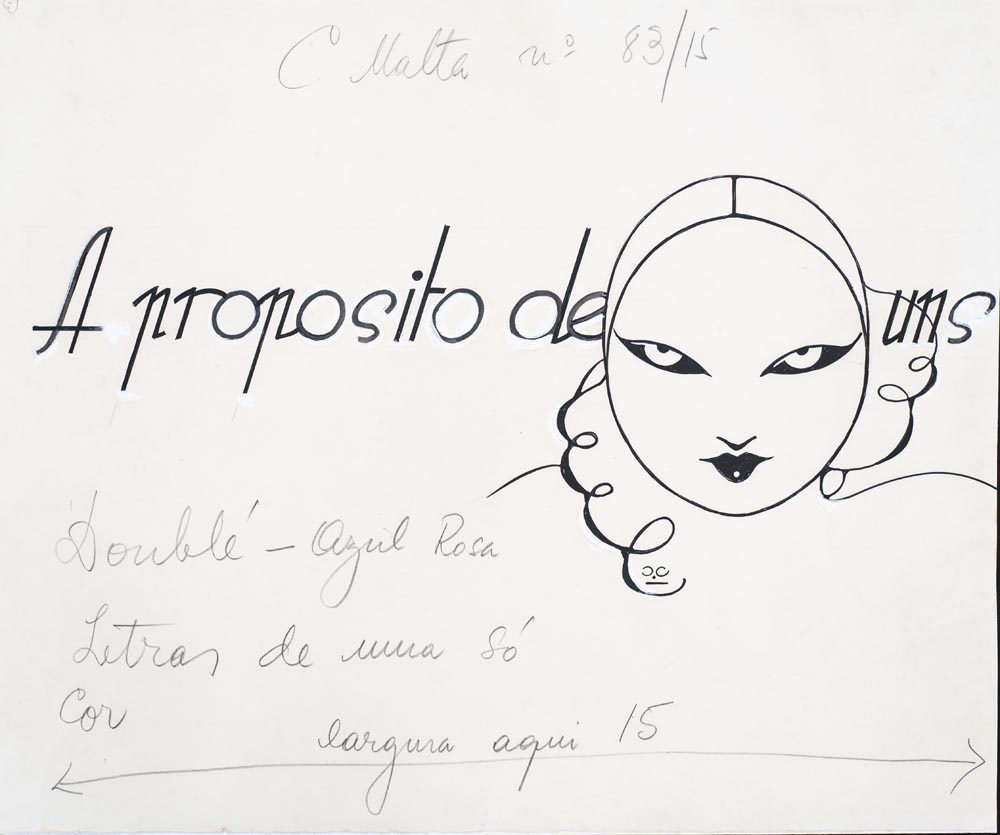 C Malta nº 83/15
A proposito de uns
Doublé - Azul Rosa
Letras de uma só
Cor
largura aqui 15